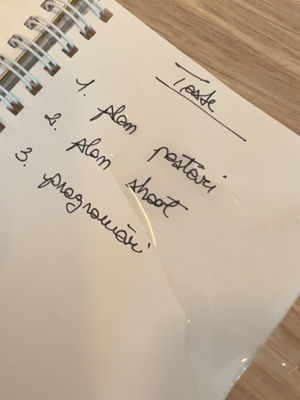 Taste
1. plan postări
2. plan shoot
3. programări